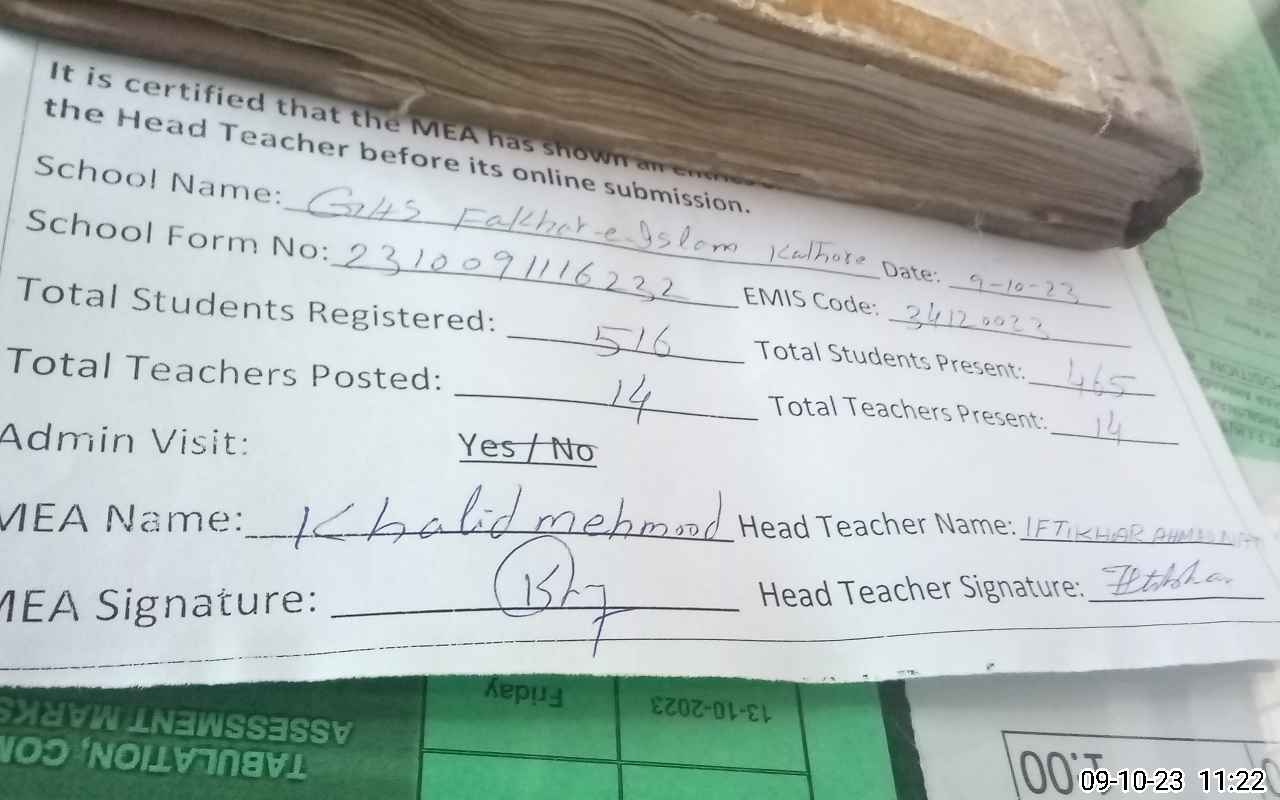 It is certified that the MEA has shown all entries
the Head Teacher before its online submission.
School Name: GHS Fakhar-e-Islam Kathore Date: 9-10-23
School Form No: 2310091116232 EMIS Code: 34120023
Total Students Registered: 516 Total Students Present: 465
Total Teachers Posted: 14 Total Teachers Present: 14
Admin Visit: Yes / No
MEA Name: Khalid mehmood Head Teacher Name: IFTIKHAR AHMED
MEA Signature: Head Teacher Signature: Iftikhar
Friday 13-10-2023
ASSESSMENT MARKS
TABULATION, COM
1:00
09-10-23 11:22